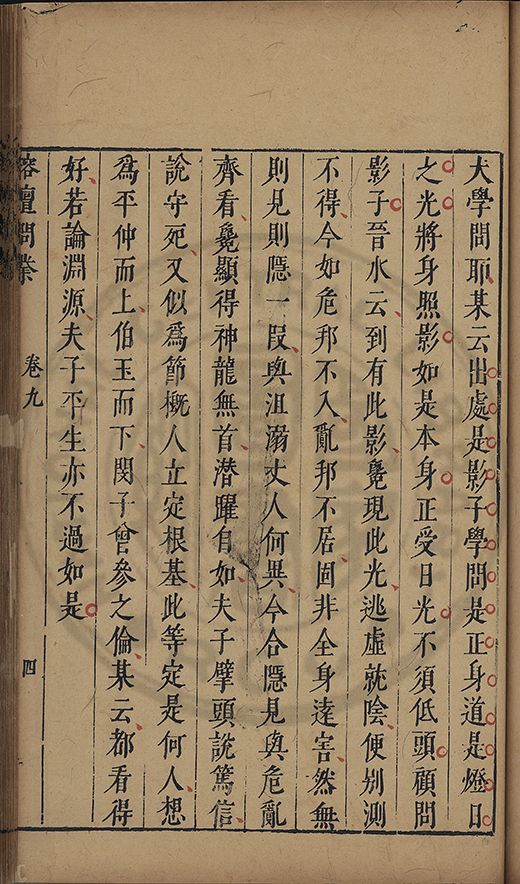 大學問耶某云出處是影子學問是正身道是燈日
之光將身照影如是本身正受日光不須低頭顧問
影子晉水云到有此影覺現此光逃虛就陰便別測
不得今如危邦不入亂邦不居固非全身遠害然無
則見則隱一段與沮溺丈人何異今合隱見與危亂
齊看覺顯得神龍無首潛躍自如夫子擘頭說篤信
說守死又似爲節概人立定根基此等定是何人想
爲平仲而上伯玉而下閔子曾參之倫某云都看得
好若論淵源夫子平生亦不過如是
榕壇問業
卷九
四